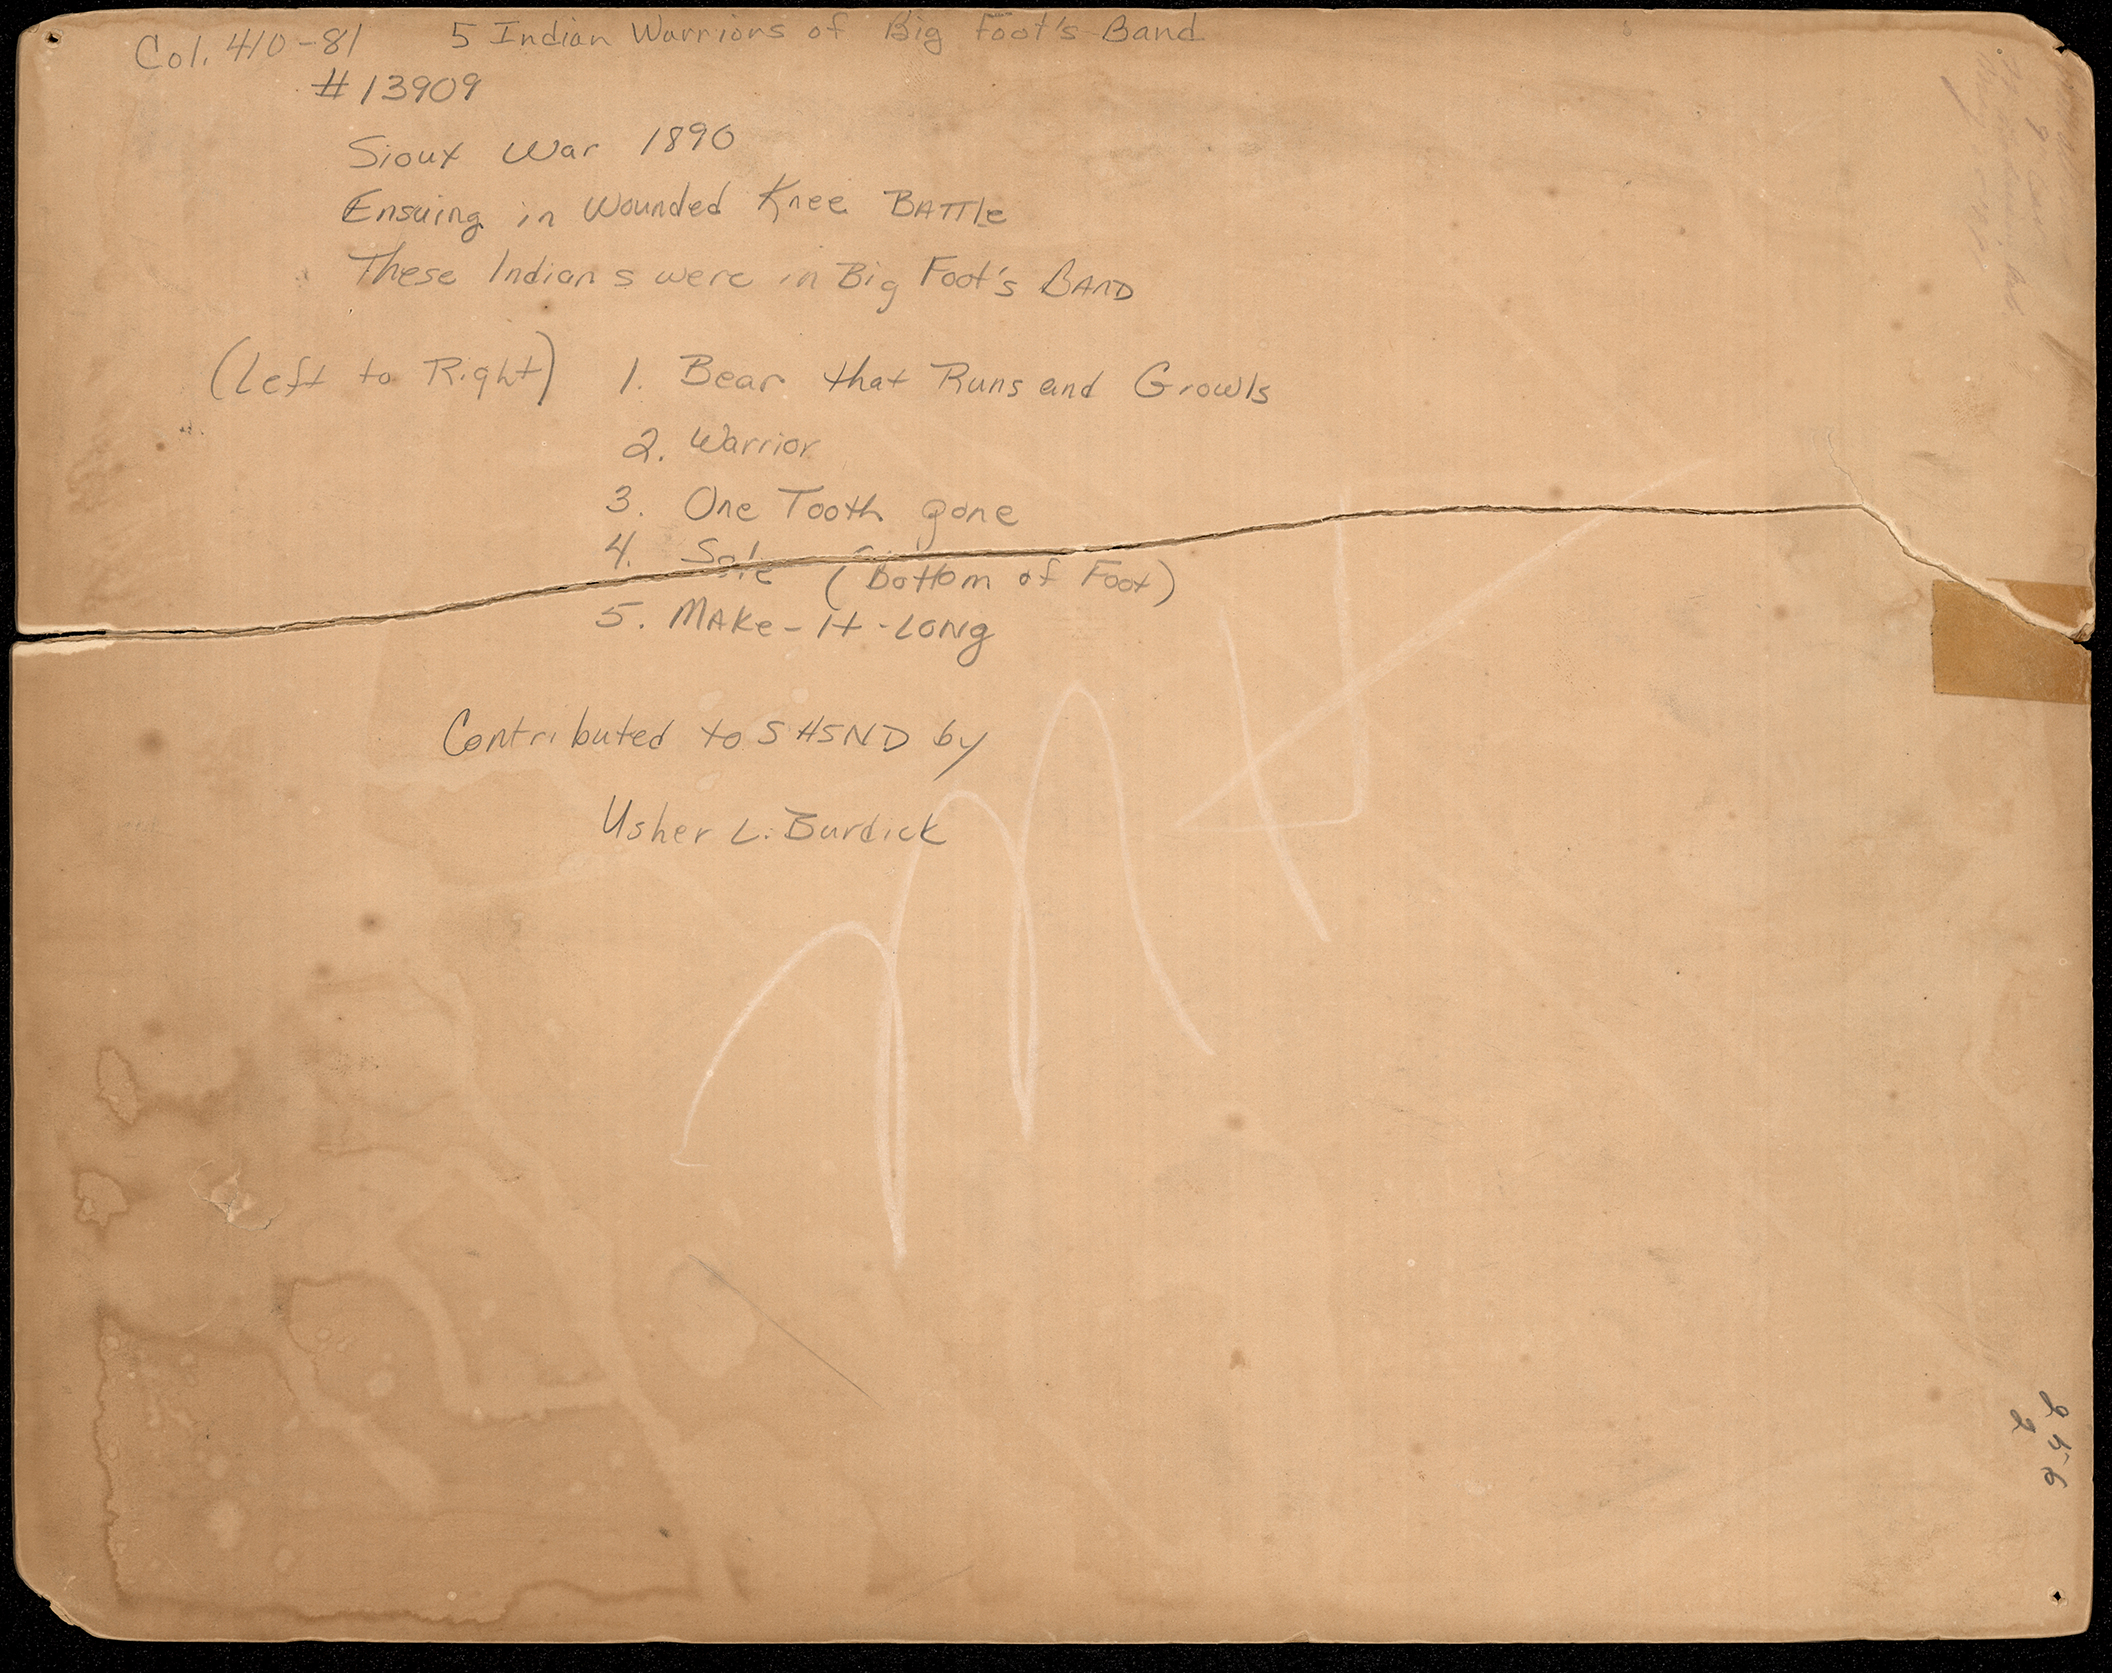 Col. 410-81 5 Indian Warriors of Big Foot's Band
#13909
Sioux War 1890
Ensuing in Wounded Knee BATTle
These Indians were in Big Foot's BAND
(Left to Right) 1. Bear that Runs and Growls
2. Warrior
3. One Tooth gone
4. Sole (Bottom of Foot)
5. MAKe-It-LONg
Contributed to SHSND by
Usher L. Burdick